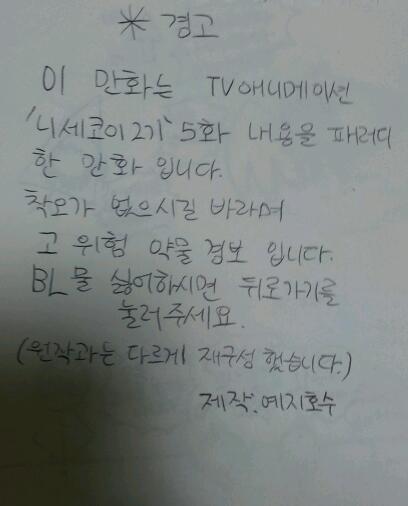 * 경고
이 만화는 TV애니메이션
'니세코이 2기' 5화 내용을 패러디
한 만화 입니다.
착오가 없으시길 바라며
고 위험 약물 경보 입니다.
BL물 싫어하시면 뒤로가기를
눌러주세요.
(원작과는 다르게 재구성 했습니다.)
제작. 예지호수